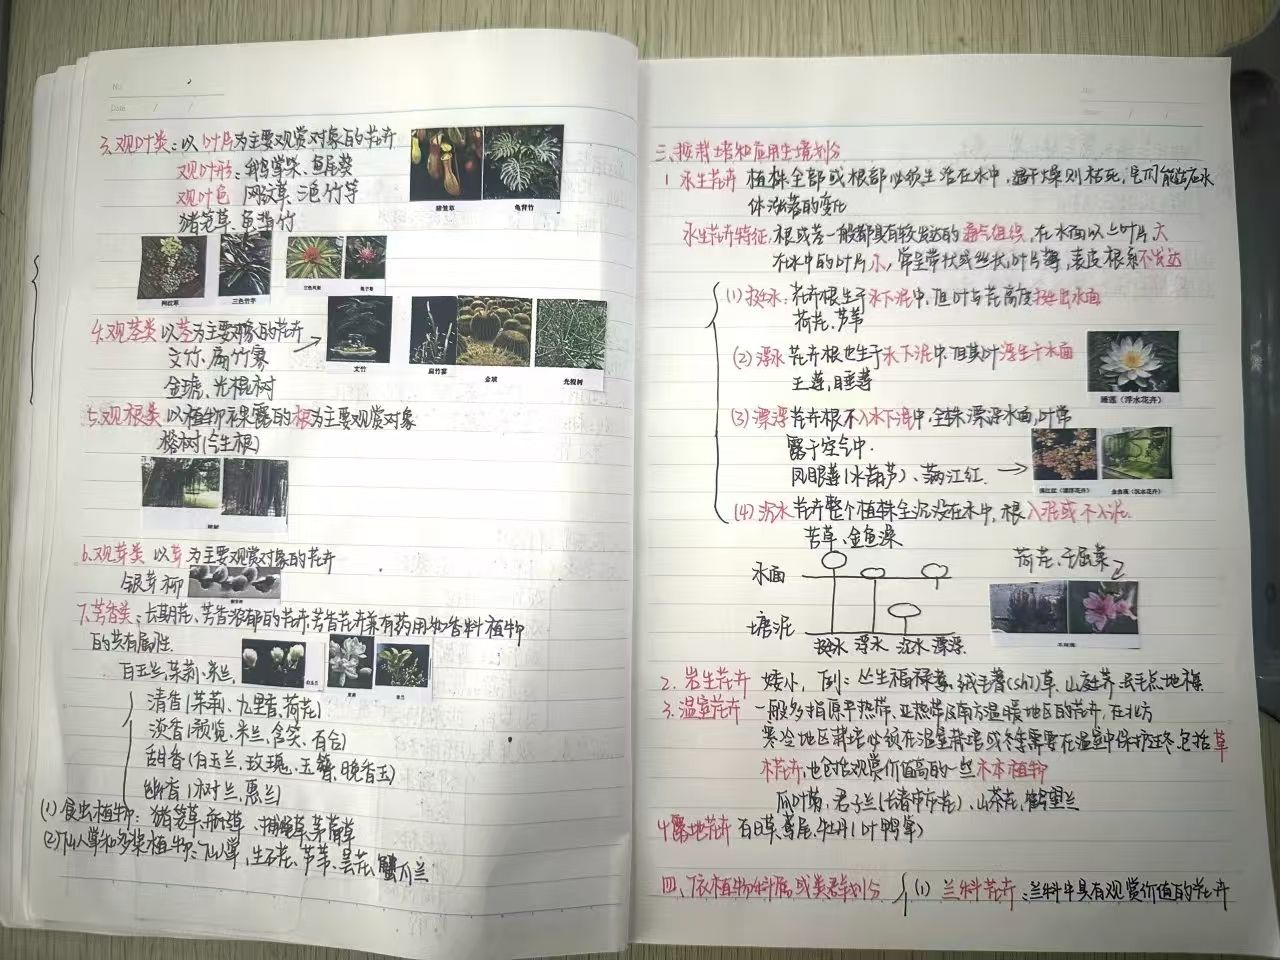 No.
Date
3.观叶类:以叶片为主要观赏对象的花卉
观叶形:鹅掌柴、鱼尾葵
观叶色 网纹草、三色竹芋
猪笼草、龟背竹
猪笼草 龟背竹
网纹草 三色竹芋
4.观茎类 以茎为主要对象的花卉
文竹、扁竹蓼
金琥、光棍树
文竹 扁竹蓼 金琥 光棍树
5.观根类 以植物裸露的根为主要观赏对象
榕树(气生根)
榕树
6.观芽类 以芽为主要观赏对象的花卉
银芽柳
7.芳香类:花期长、芳香浓郁的花卉
的共有属性.
白玉兰,茉莉、米兰,
清香(茉莉、九里香、荷花)
淡香(米兰、含笑、百合)
甜香(白玉兰、玫瑰、玉簪、晚香玉)
幽香(树兰、蕙兰)
(1)食虫植物:猪笼草、捕蝇草、茅膏草
(2)仙人掌和多浆植物:仙人掌,生石花、芦荟、昙花、蟹爪兰
三、按栽培和应用生境划分
1 水生花卉 植株全部或根部必须生活在水中,遇干燥则枯死,
体涨落的变化
水生花卉特征,根或茎一般都具有较发达的通气组织,在水面以上叶片大
在水中的叶片小,常呈带状或丝状,叶片薄,表皮根系不发达
(1)挺水:花卉根生于水下泥中,但叶与花高度挺出水面
荷花、芦苇
(2)浮水 花卉根也生于水下泥中,但其叶浮生于水面
王莲,睡莲
睡莲(浮水花卉)
(3)漂浮 花卉根不入水下泥中,全株漂浮水面,叶常
露于空气中.
凤眼莲(水葫芦)、满江红.
满江红(漂浮花卉) 金鱼藻(沉水花卉)
(4)沉水 花卉整个植株全沉没在水中,根入泥或不入泥.
苦草、金鱼藻
荷花、千屈菜
水面
塘泥
挺水 浮水 沉水 漂浮.
千屈菜
2.岩生花卉 矮小,例:丛生福禄考、绒毛蓍(shi)草、山庭荠
3.温室花卉 一般多指原产热带、亚热带及南方温暖地区的花卉,在北方
寒冷地区栽培必须在温室栽培或冬季需要在温室中保护越冬.包括草
本花卉,也包括观赏价值高的一些木本植物
瓜叶菊,君子兰(长春市市花)、山茶花、鹤望兰
4 露地花卉 百日草、鸢尾、牡丹
四、依植物科属或类群划分
(1) 兰科花卉:兰科中具有观赏价值的花卉